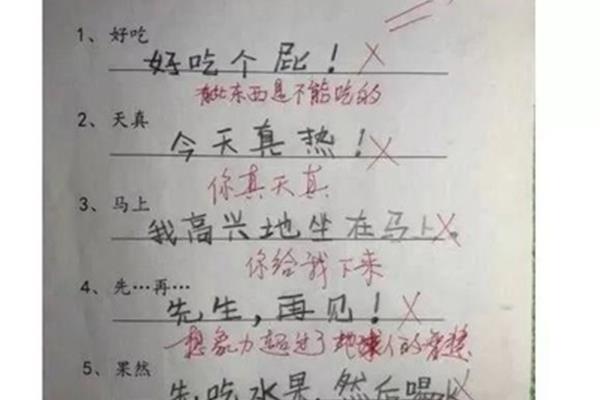 1、好吃
好吃个屁!
有些东西是不能吃的
2、天真
今天真热!
你真天真
3、马上
我高兴地坐在马上。
你给我下来
4、先…再…
先生，再见!
想象力超过了地球人的智慧
5、果然
先吃水果,然后喝水